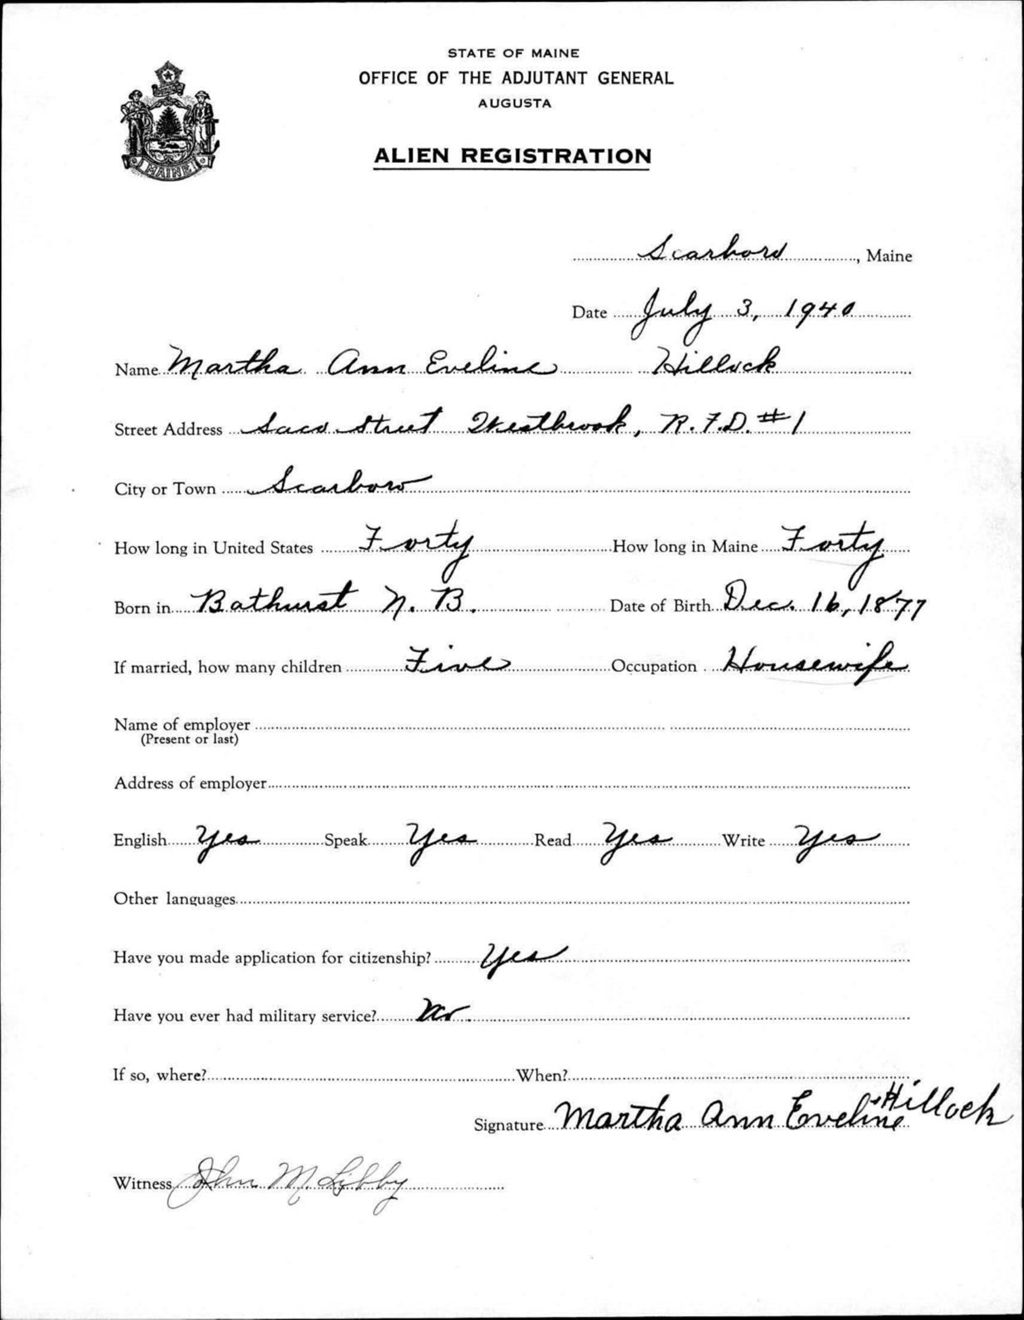 STATE OF MAINE
OFFICE OF THE ADJUTANT GENERAL
AUGUSTA
ALIEN REGISTRATION
MAINE
Scarboro, Maine
Date July 3, 1940
Name Martha Ann Eveline Hillock
Street Address Saco Street Westbrook, R.F.D. #1
City or Town Scarboro
How long in United States Forty How long in Maine Forty
Born in Bathurst N. B. Date of Birth Dec. 16, 1877
If married, how many children Five Occupation Housewife
Name of employer
(Present or last)
Address of employer
English Yes Speak Yes Read Yes Write Yes
Other languages
Have you made application for citizenship? Yes
Have you ever had military service? No.
If so, where? When?
Signature Martha Ann Eveline Hillock
Witness John M Libby